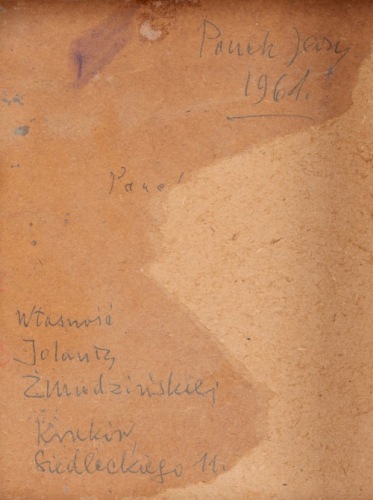 Panek Jerzy
1961.
Panek
Własność
Jolanty
Żmudzińskiej
Kraków,
Siedleckiego 11.